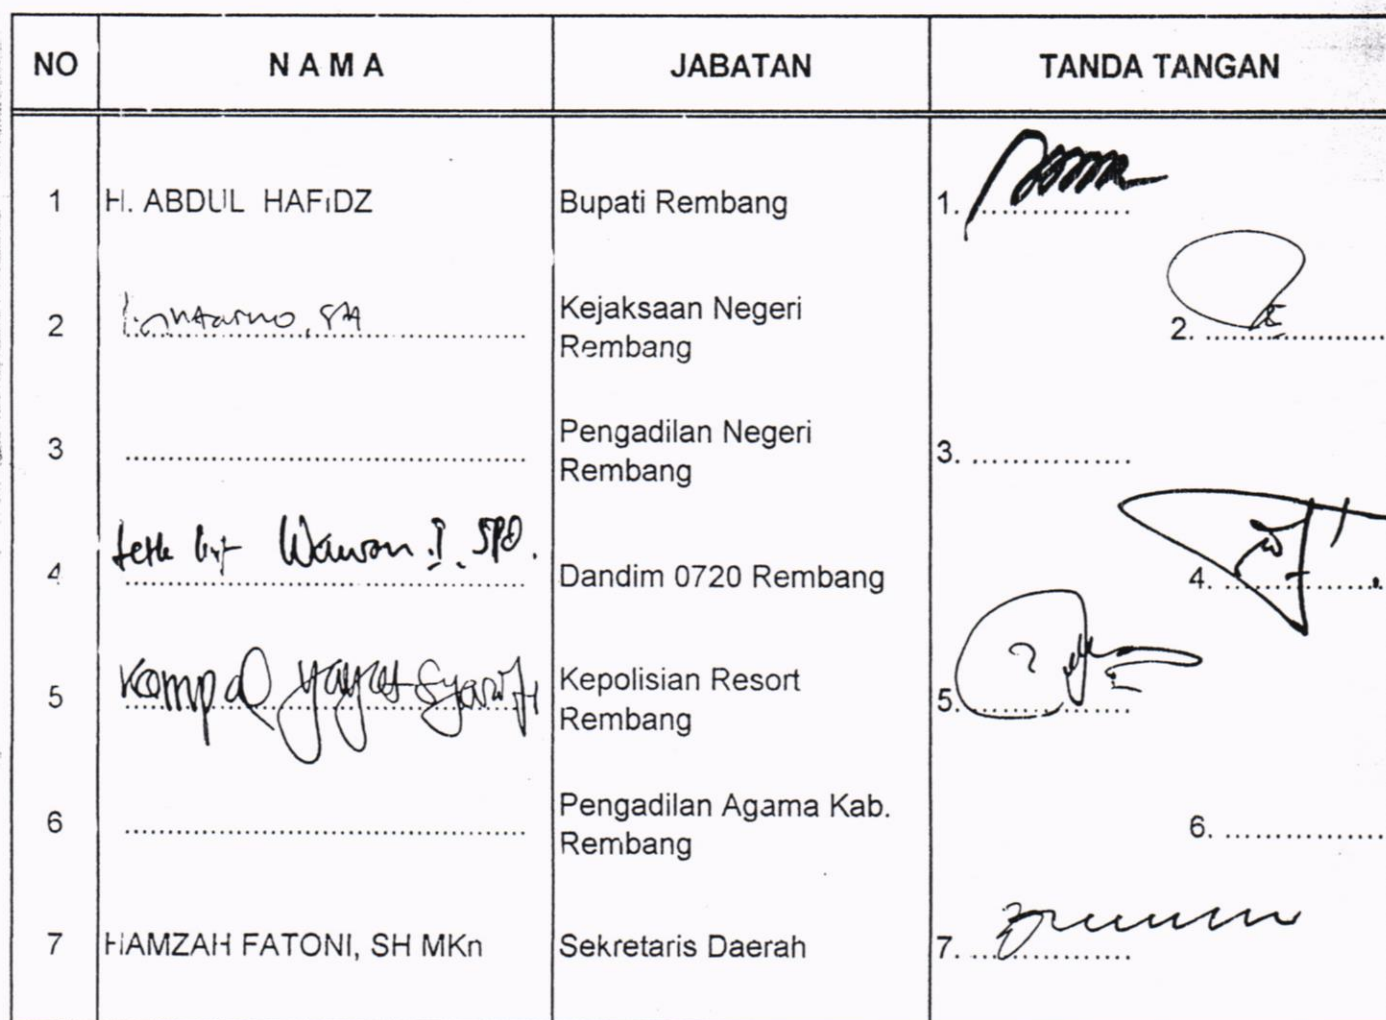 NO NAMA JABATAN TANDA TANGAN
1 H. ABDUL HAFIDZ Bupati Rembang 1. ..............
2 Kejaksaan Negeri
Rembang 2. ..............
3 .............................. Pengadilan Negeri
Rembang 3. ..............
4 Wawan Dandim 0720 Rembang 4. ..............
5 Kompol Yayat Kepolisian Resort
Rembang 5. ..............
6 .............................. Pengadilan Agama Kab.
Rembang 6. ..............
7 HAMZAH FATONI, SH MKn Sekretaris Daerah 7. ..............